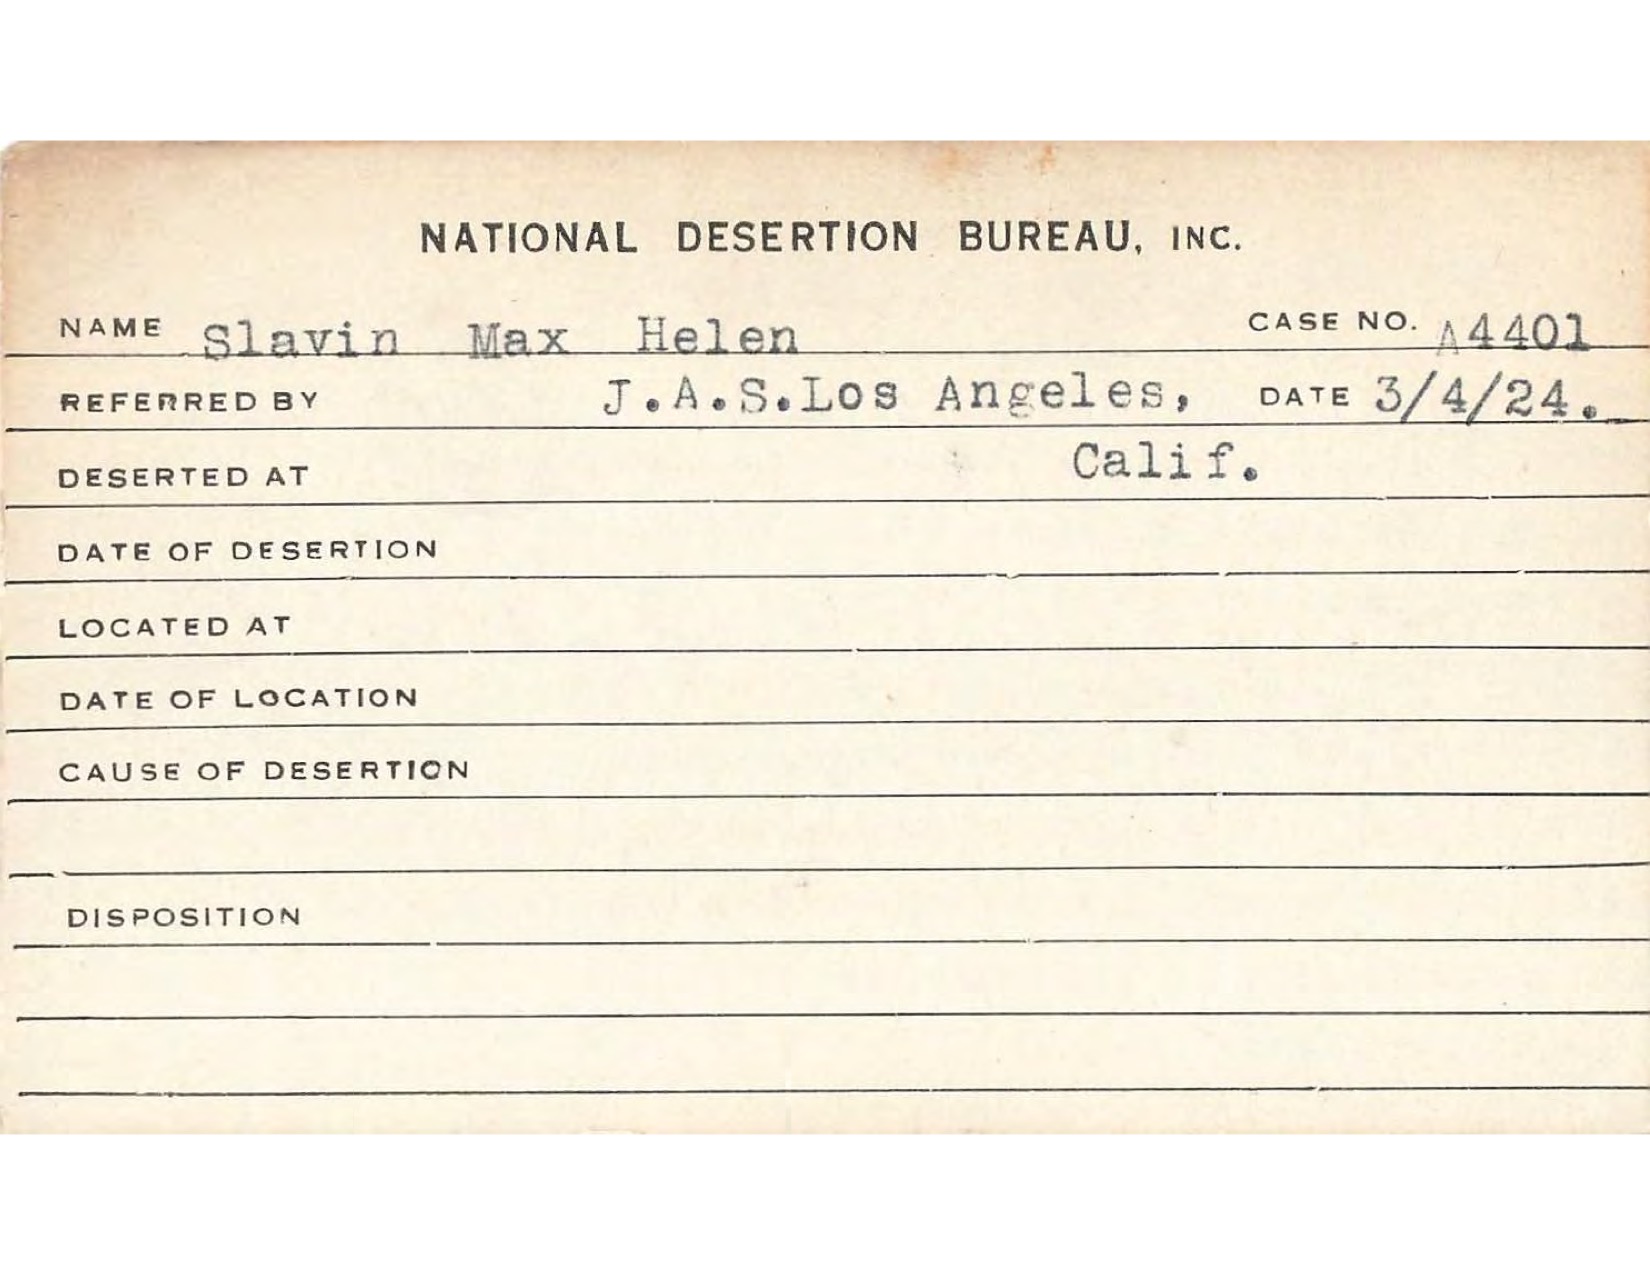 NATIONAL DESERTION BUREAU, INC.
NAME Slavin Max Helen CASE NO. A4401
REFERRED BY J.A.S.Los Angeles, DATE 3/4/24.
DESERTED AT Calif.
DATE OF DESERTION
LOCATED AT
DATE OF LOCATION
CAUSE OF DESERTION
DISPOSITION